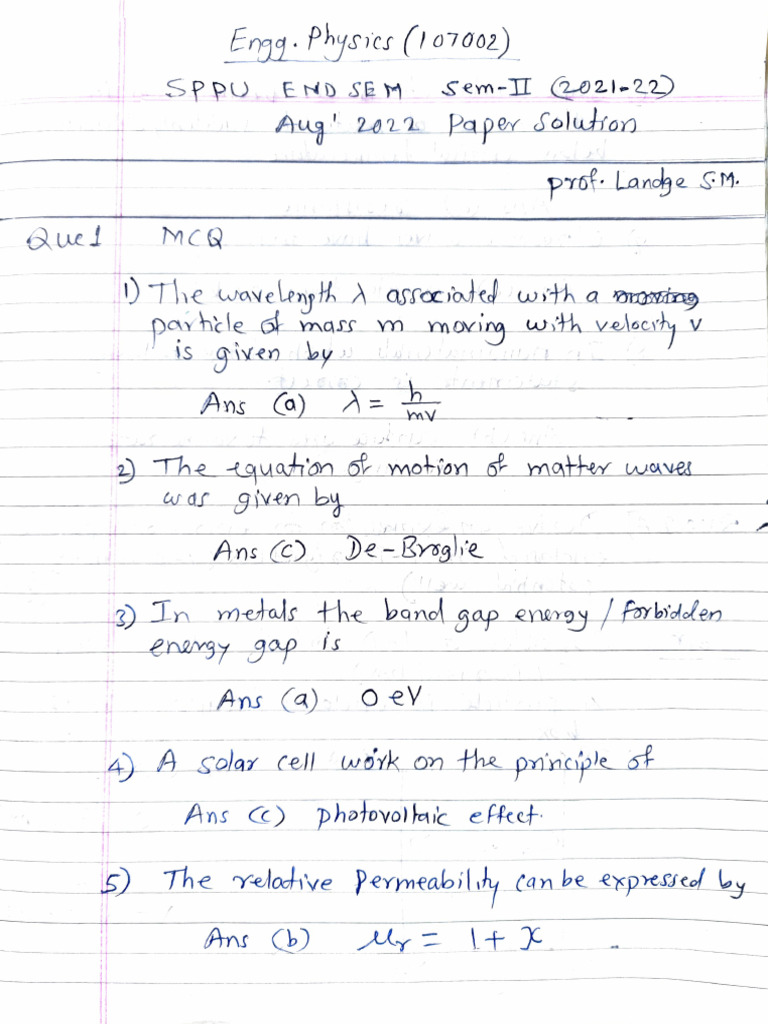 Engg. Physics (107002)
SPPU END SEM Sem-II (2021-22)
Aug' 2022 Paper Solution
prof. Landge S.M.
Que 1 MCQ
1) The wavelength λ associated with a moving
particle of mass m moving with velocity v
is given by
Ans (a) λ = h/mv
2) The equation of motion of matter waves
was given by
Ans (c) De-Broglie
3) In metals the band gap energy / forbidden
energy gap is
Ans (a) 0 eV
4) A solar cell work on the principle of
Ans (c) photovoltaic effect.
5) The relative Permeability can be expressed by
Ans (b) μr = 1 + χ